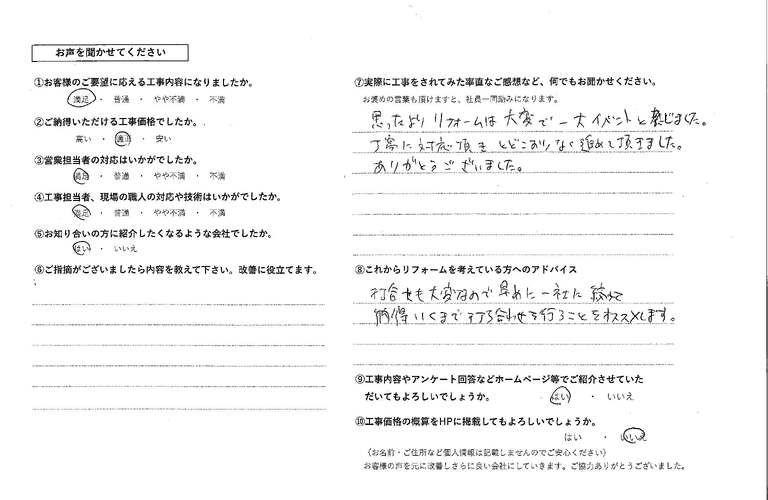 お声を聞かせてください
①お客様のご要望に応える工事内容になりましたか。
満足 ・ 普通 ・ やや不満 ・ 不満
②ご納得いただける工事価格でしたか。
高い ・ 適正 ・ 安い
③営業担当者の対応はいかがでしたか。
満足 ・ 普通 ・ やや不満 ・ 不満
④工事担当者、現場の職人の対応や技術はいかがでしたか。
満足 ・ 普通 ・ やや不満 ・ 不満
⑤お知り合いの方に紹介したくなるような会社でしたか。
はい ・ いいえ
⑥ご指摘がございましたら内容を教えて下さい。改善に役立てます。
⑦実際に工事をされてみた率直なご感想など、何でもお聞かせください。
お褒めの言葉も頂けますと、社員一同励みになります。
思ったより リフォームは 大変で 一大イベントと 感じました。
丁寧に 対応頂き とどこおりなく 進めて頂きました。
ありがとうございました。
⑧これからリフォームを考えている方へのアドバイス
打合せも大変なので 早めに 一社に 絞って
納得いくまで 打ち合わせを行うことをオススメします。
⑨工事内容やアンケート回答などホームページ等でご紹介させていた
だいてもよろしいでしょうか。 はい ・ いいえ
⑩工事価格の概算をHPに掲載してもよろしいでしょうか。
はい ・ いいえ
（お名前・ご住所など個人情報は記載しませんのでご安心ください）
お客様の声を元に改善しさらに良い会社にしていきます。ご協力ありがとうございました。